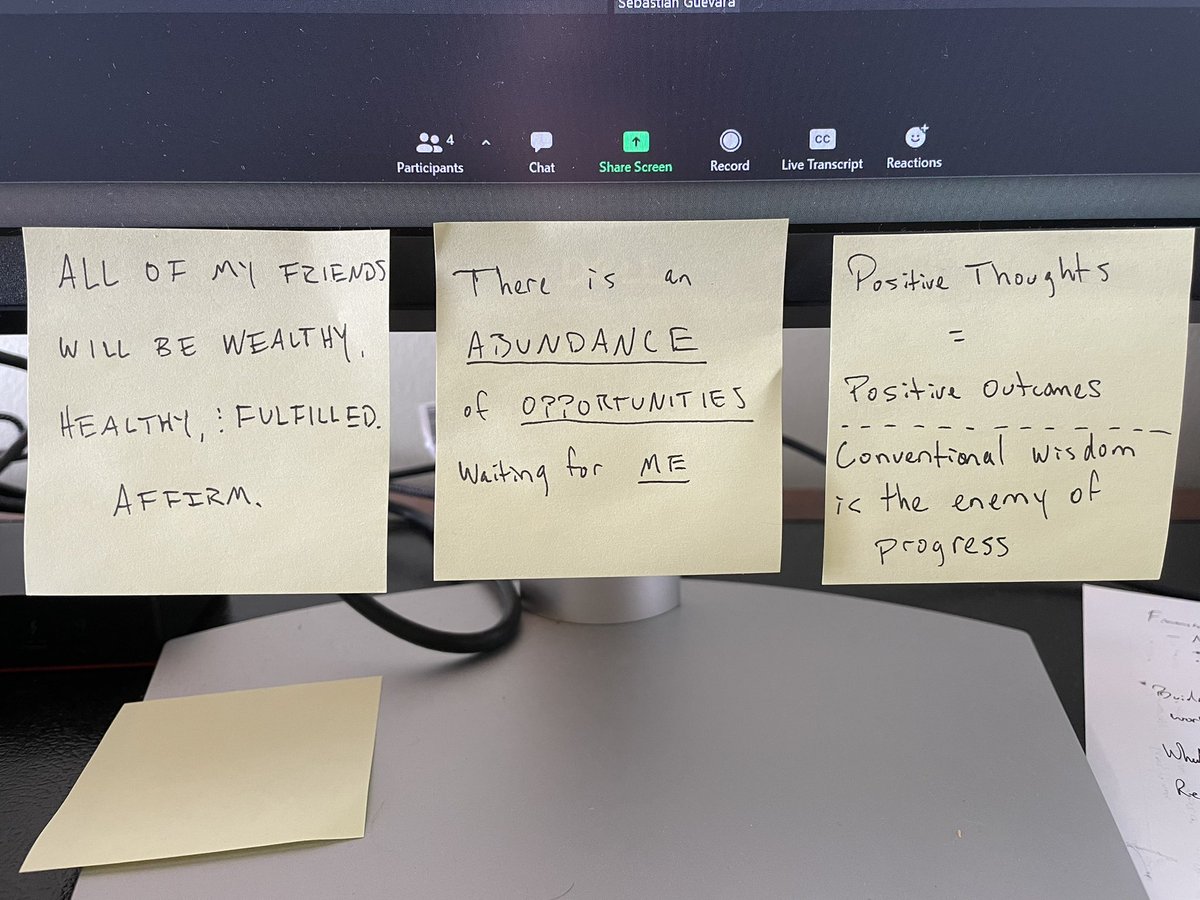 Sebastian Guevara
4
Participants
Chat
Share Screen
Record
CC
Live Transcript
Reactions
ALL OF MY FRIENDS
WILL BE WEALTHY,
HEALTHY, & FULFILLED.
AFFIRM.
There is an
ABUNDANCE
of OPPORTUNITIES
Waiting for ME
Positive Thoughts
=
Positive Outcomes
Conventional wisdom
is the enemy of
progress